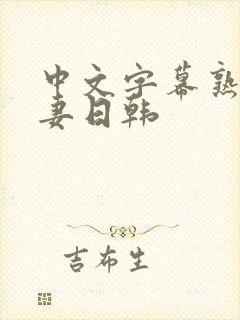 中文字幕熟
妻日韩
吉布生